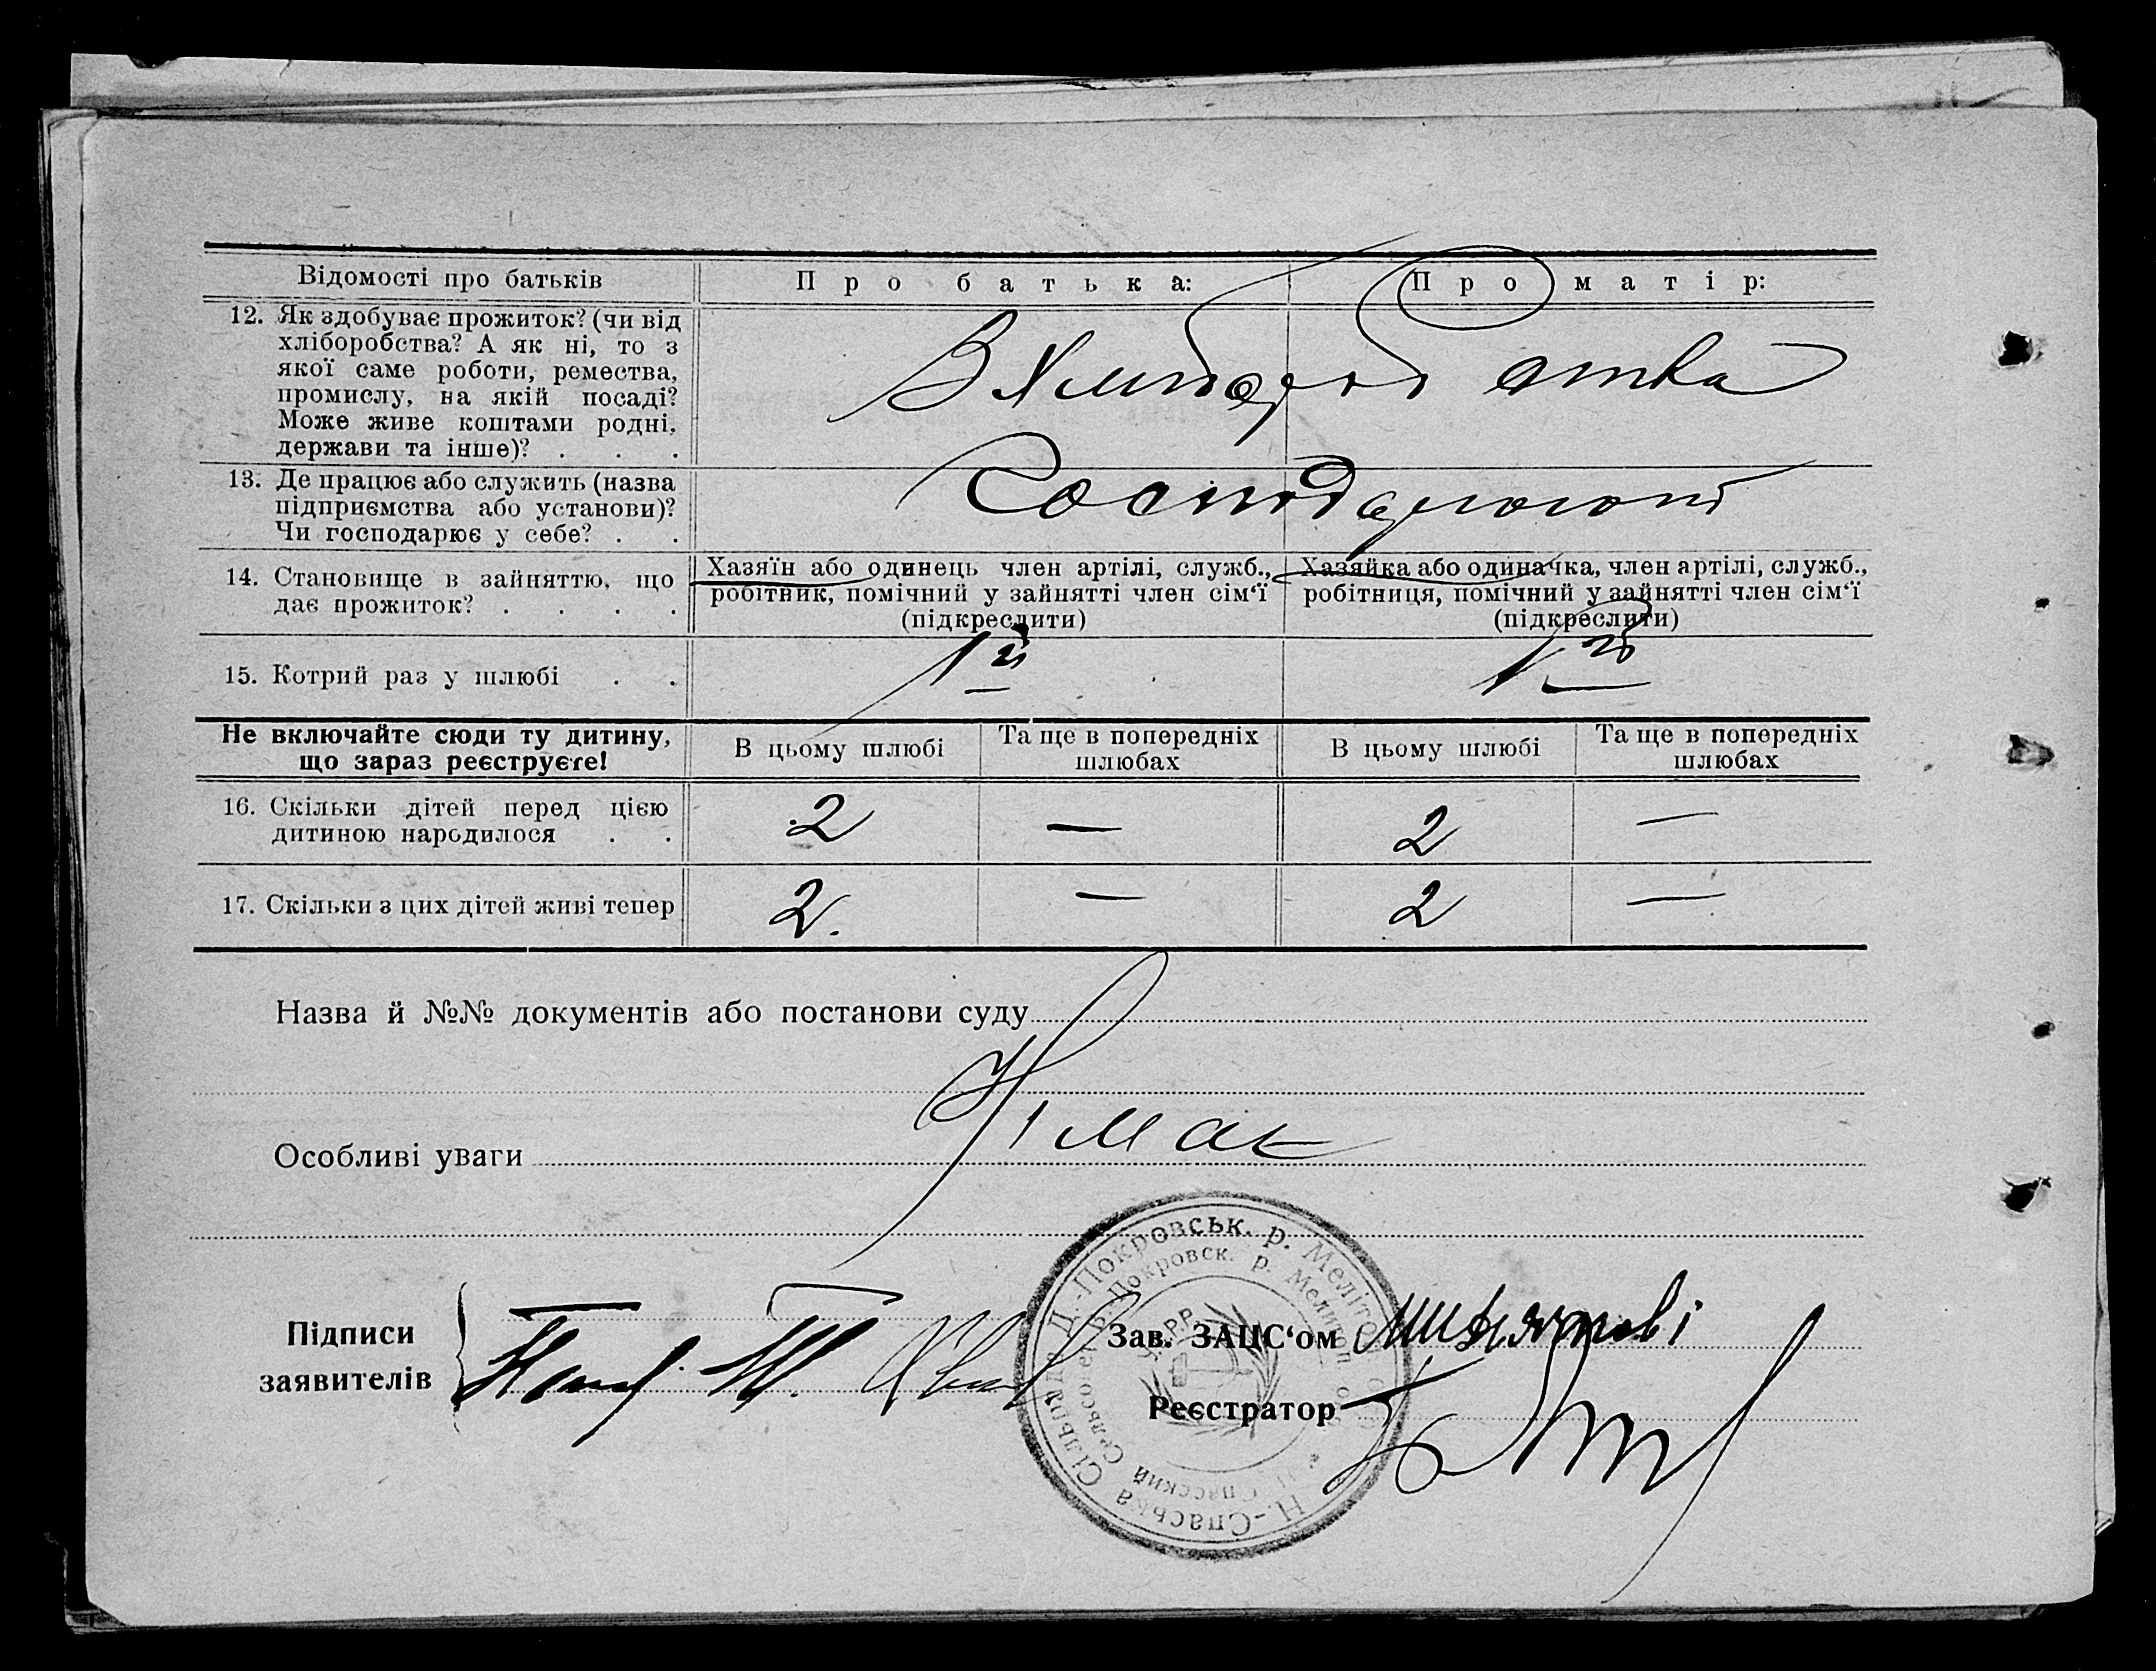 Відомості про батьків
Про батька:
Про матір:
12. Як здобуває прожиток? (чи від
хліборобства? А як ні, то з
якої саме роботи, ремества,
промислу, на якій посаді?
Може живе коштами родні,
держави та інше)? . . .
13. Де працює або служить (назва
підприємства або установи)?
Чи господарює у себе? . .
14. Становище в зайняттю, що
дає прожиток? . . . .
Хазяїн або одинець член артілі, служб.,
робітник, помічний у зайнятті член сім‘ї
(підкреслити)
Хазяйка або одиначка, член артілі, служб.,
робітниця, помічний у зайнятті член сім‘ї
(підкреслити)
15. Котрий раз у шлюбі . .
1й
1й
Не включайте сюди ту дитину,
що зараз реєструєте!
В цьому шлюбі
Та ще в попередніх
шлюбах
В цьому шлюбі
Та ще в попередніх
шлюбах
16. Скільки дітей перед цією
дитиною народилося . .
2 — 2 —
17. Скільки з цих дітей живі тепер
2. — 2 —
Назва й №№ документів або постанови суду
Німає
Особливі уваги
Підписи
заявителів
Зав. ЗАЦС‘ом
Реєстратор
Н.-Спаська Сільрада Д.-Покровськ. р. Меліт
Спасский Сельсовет Покровск. р. Мелитоп